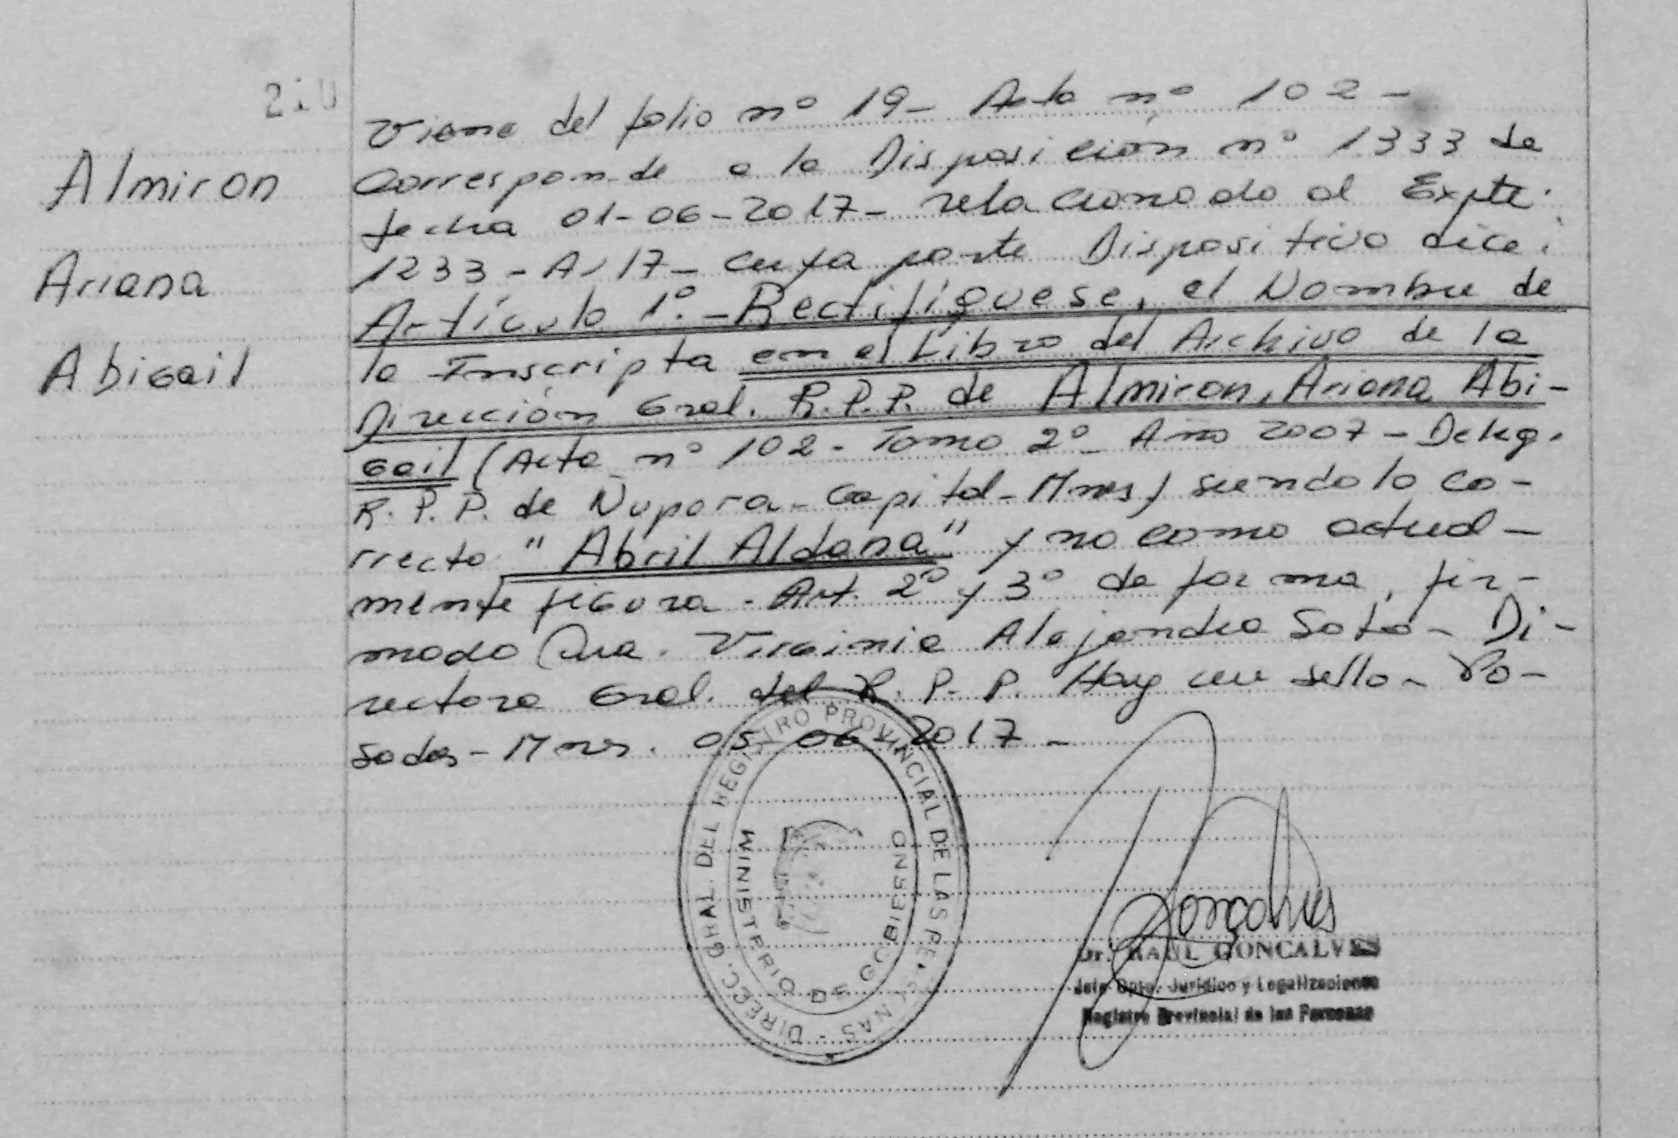 Almiron
Ariana
Abigail
Viene del folio nº 19- Acta nº 102-
Corresponde a la Disposición nº 1333 de
fecha 01-06-2017- relacionado al Expte.
1233-A-17- cuya parte Dispositiva dice:
Artículo 1º.- Rectifíquese, el Nombre de
la Inscripta en el Libro del Archivo de la
Dirección Gral. R.P.P. de Almiron, Ariana Abi-
gail (Acta nº 102- Tomo 2º- Año 2007- Deleg.
R.P.P. de Ñupora- Capital- Mnes) siendo lo co-
rrecto "Abril Aldana" y no como actual-
mente figura. Art. 2º y 3º de forma, fir-
mado Dra. Virginia Alejandra Soto- Di-
rectora Gral. del R.P.P. Hay un sello- Po-
sadas- Mnes. 05 06 2017-
DIREC. GRAL. DEL REGISTRO PROVINCIAL DE LAS PERSONAS -
MINISTERIO DE GOBIERNO
Goncalves
Dr. RAUL GONCALVES
Jefe Dpto. Jurídico y Legalizaciones
Registro Provincial de las Personas